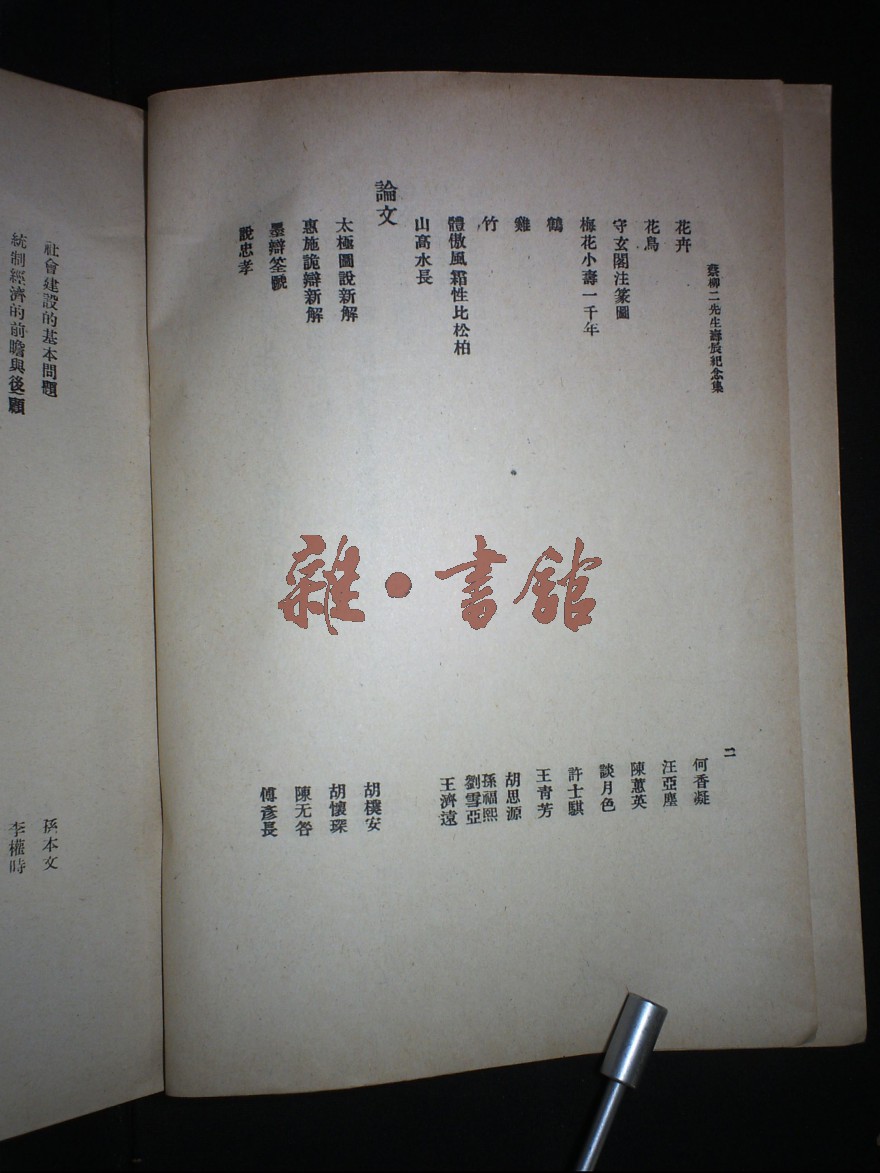 蔡柳二先生壽辰紀念集
二
花卉
何香凝
花鳥
汪亞塵
守玄閣注篆圖
陳蕙英
梅花小壽一千年
談月色
鶴
許士騏
雞
王青芳
竹
胡思源
體傲風霜性比松柏
孫福熙
劉雪亞
山高水長
王濟遠
論文
太極圖說新解
胡樸安
惠施詭辯新解
胡懷琛
墨辯
陳无咎
說忠孝
傅彥長
社會建設的基本問題
孫本文
統制經濟的前瞻與後顧
李權時
雜·書館